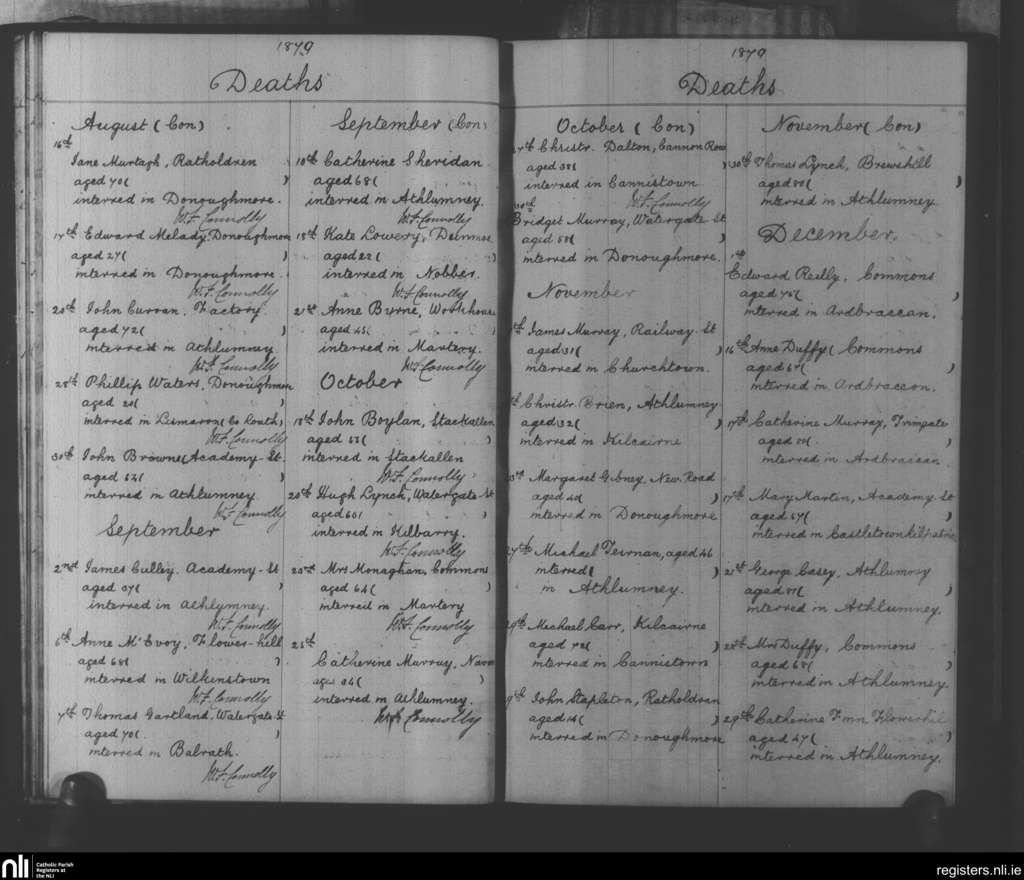 1879
Deaths
August (Con)
16th
Jane Murtagh, Ratholdren
aged 70( )
interred in Donoughmore.
W.F. Connolly
17th Edward Melady, Donoughmore
aged 27( )
interred in Donoughmore.
W.F. Connolly
20th John Curran, Factory.
aged 72( )
interred in Athlumney
W.F. Connolly
28th Phillip Waters, Donoughmore
aged
interred in (Co Louth)
W.F. Connolly
30th John Browne (Academy St.
aged
interred in Athlumney
W.F. Connolly
September
2nd James Culley. Academy St
aged
interred in Athlymney.
W.F. Connolly
6th Anne McEvoy, Flower-hill
aged 68( )
interred in Wilkinstown
W.F. Connolly
7th Thomas Gartland, Watergate St
aged 70( )
interred in Balrath.
W.F. Connolly
September (Con)
10th Catherine Sheridan
aged 68(
interred in Athlumney.
W.F. Connolly
18th Kate Lowery,
aged 22( )
interred in Nobber.
W.F. Connolly
21st Anne Byrne, Workhouse
aged 45( )
interred in Martery.
W.F. Connolly
October
18th John Boylan, Stackallen
aged )
interred in Stackallen
W.F. Connolly
20th Hugh Lynch, Watergate St
aged )
interred in Kilbarry.
W.F. Connolly
Mrs Monaghan, Commons
aged 64( )
interred in Martery
W.F. Connolly
25th
Catherine Murray, Navan
aged )
interred in Athlumney.
W.F. Connolly
1879
Deaths
October (Con)
Christr. Dalton, Cannon Row
aged 38( )
interred in Cannistown
W.F. Connolly
30th
Bridget Murray, Watergate St
aged )
interred in Donoughmore.
November
James Murray, Railway St
aged 31( )
interred in Churchtown.
Christr. Brien, Athlumney
aged 32( )
interred in Kilcairne
Margaret Gibney, New Road
aged )
interred in Donoughmore
27th Michael Teirnan, aged 46
interred( )
in Athlumney.
29th Michael Carr, Kilcairne
aged 72( )
interred in Cannistown
John Stapleton, Ratholdran
aged )
interred in Donoughmore
November (Con)
30th Thomas Lynch, Brewshill
aged )
interred in Athlumney.
December.
1st
Edward Reilly, Commons
aged 75( )
interred in Ardbraccan.
16th Anne Duffy( Commons
aged 67( )
interred in Ardbraccan.
17th Catherine Murray, Trimgate
aged
interred in Ardbraccan
17th Mary Martin, Academy St
aged 57( )
interred in Castletownkilpatric
21st George Casey, Athlumny
aged )
interred in Athlumney.
28th Mrs Duffy, Commons
aged 68( )
interred in Athlumney.
29th Catherine Finn Flowerhil
aged 47( )
interred in Athlumney.
nli
Catholic Parish
Registers at
the NLI
registers.nli.ie